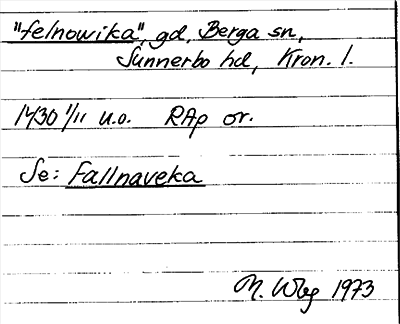 "felnowika", gd, Berga sn,
Sunnerbo hd, Kron. l.
1430 1/11 u.o. RAp or.
Se: Fallnaveka
1973